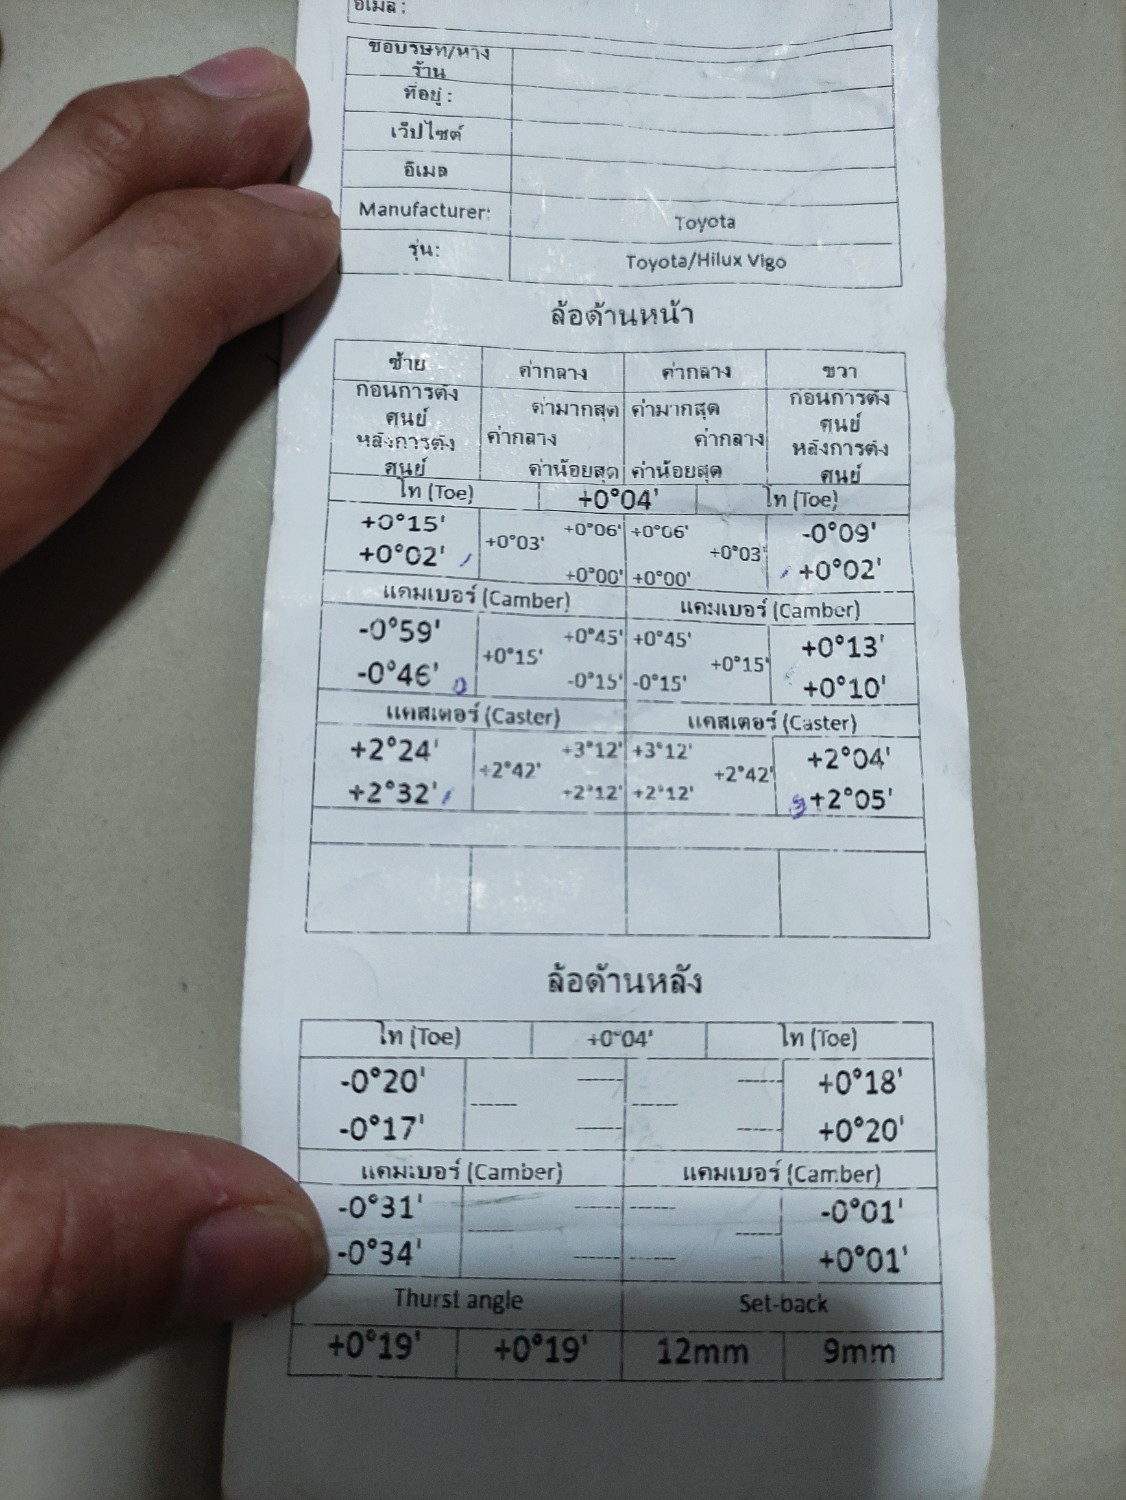 อีเมล :
ชื่อบริษัท/ห้างร้าน
ที่อยู่ :
เว็ปไซต์
อีเมล
Manufacturer: Toyota
รุ่น: Toyota/Hilux Vigo
ล้อด้านหน้า
ซ้าย ค่ากลาง ค่ากลาง ขวา
ก่อนการตั้งศูนย์ ค่ามากสุด ค่ามากสุด ก่อนการตั้งศูนย์
ค่ากลาง ค่ากลาง
หลังการตั้งศูนย์ ค่าน้อยสุด ค่าน้อยสุด หลังการตั้งศูนย์
โท (Toe) +0°04' โท (Toe)
+0°15' +0°06' +0°06' -0°09'
+0°03' +0°03'
+0°02' +0°00' +0°00' +0°02'
แคมเบอร์ (Camber) แคมเบอร์ (Camber)
-0°59' +0°45' +0°45' +0°13'
+0°15' +0°15'
-0°46' -0°15' -0°15' +0°10'
แคสเตอร์ (Caster) แคสเตอร์ (Caster)
+2°24' +3°12' +3°12' +2°04'
+2°42' +2°42'
+2°32' +2°12' +2°12' +2°05'
ล้อด้านหลัง
โท (Toe) +0°04' โท (Toe)
-0°20' ------ ------ +0°18'
------ ------
-0°17' ------ ------ +0°20'
แคมเบอร์ (Camber) แคมเบอร์ (Camber)
-0°31' ------ ------ -0°01'
------ ------
-0°34' ------ ------ +0°01'
Thurst angle Set-back
+0°19' +0°19' 12mm 9mm